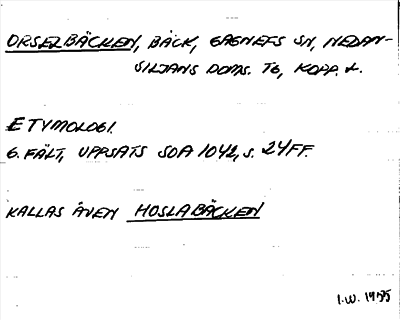 ORSELBÄCKEN, BÄCK, GAGNEFS SN, NEDAN-
SILJANS DOMS. TG, KOPP. L.
ETYMOLOGI.
G. FÄLT, UPPSATS SOA 1042, S. 24 FF.
KALLAS ÄVEN HOSLABÄCKEN
I.W. 1975